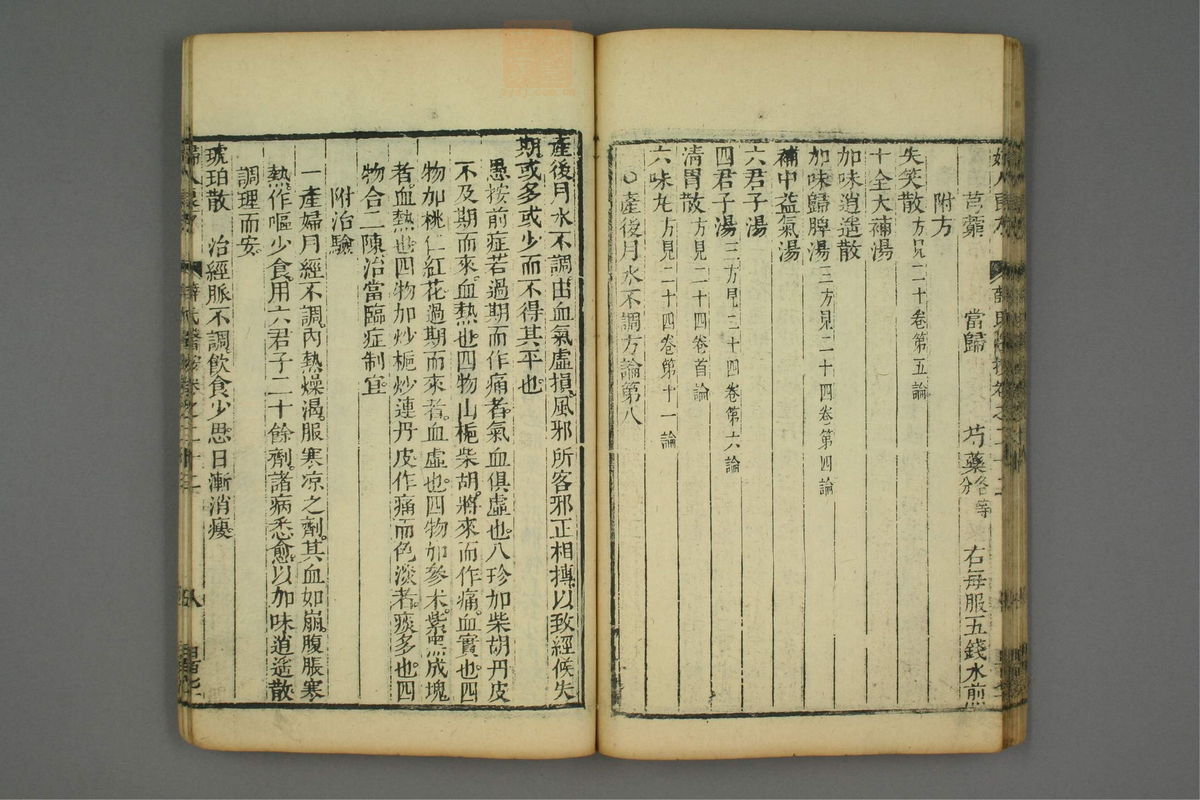 芎藭　當歸　芍藥各等分　右每服五錢水煎
附方
失笑散方見二十卷第五論
十全大補湯
加味逍遙散
加味歸脾湯三方見二十四卷第四論
補中益氣湯
六君子湯
四君子湯三方見二十四卷第六論
清胃散方見二十四卷首論
六味丸方見二十四卷第十一論
○產後月水不調方論第八
產後月水不調由血氣虛損風邪所客邪正相摶以致經候失
期或多或少而不得其平也
愚按前症若過期而作痛者氣血俱虛也八珍加柴胡丹皮
不及期而來血熱也四物山梔柴胡將來而作痛血實也四
物加桃仁紅花過期而來者血虛也四物加參术紫黑成塊
者血熱也四物加炒梔炒連丹皮作痛而色淡者痰多也四
物合二陳治當臨症制宜
附治驗
一產婦月經不調內熱燥渴服寒凉之劑其血如崩腹脹寒
熱作嘔少食用六君子二十餘劑諸病悉愈以加味逍遙散
調理而安
琥珀散　治經脈不調飲食少思日漸消瘦